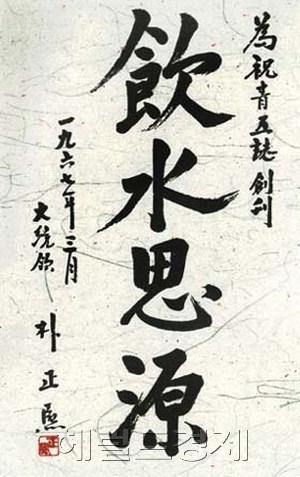 為祝青瓦誌創刊
飲水思源
一九六七年三月
大統領 朴正熙
헤럴드경제